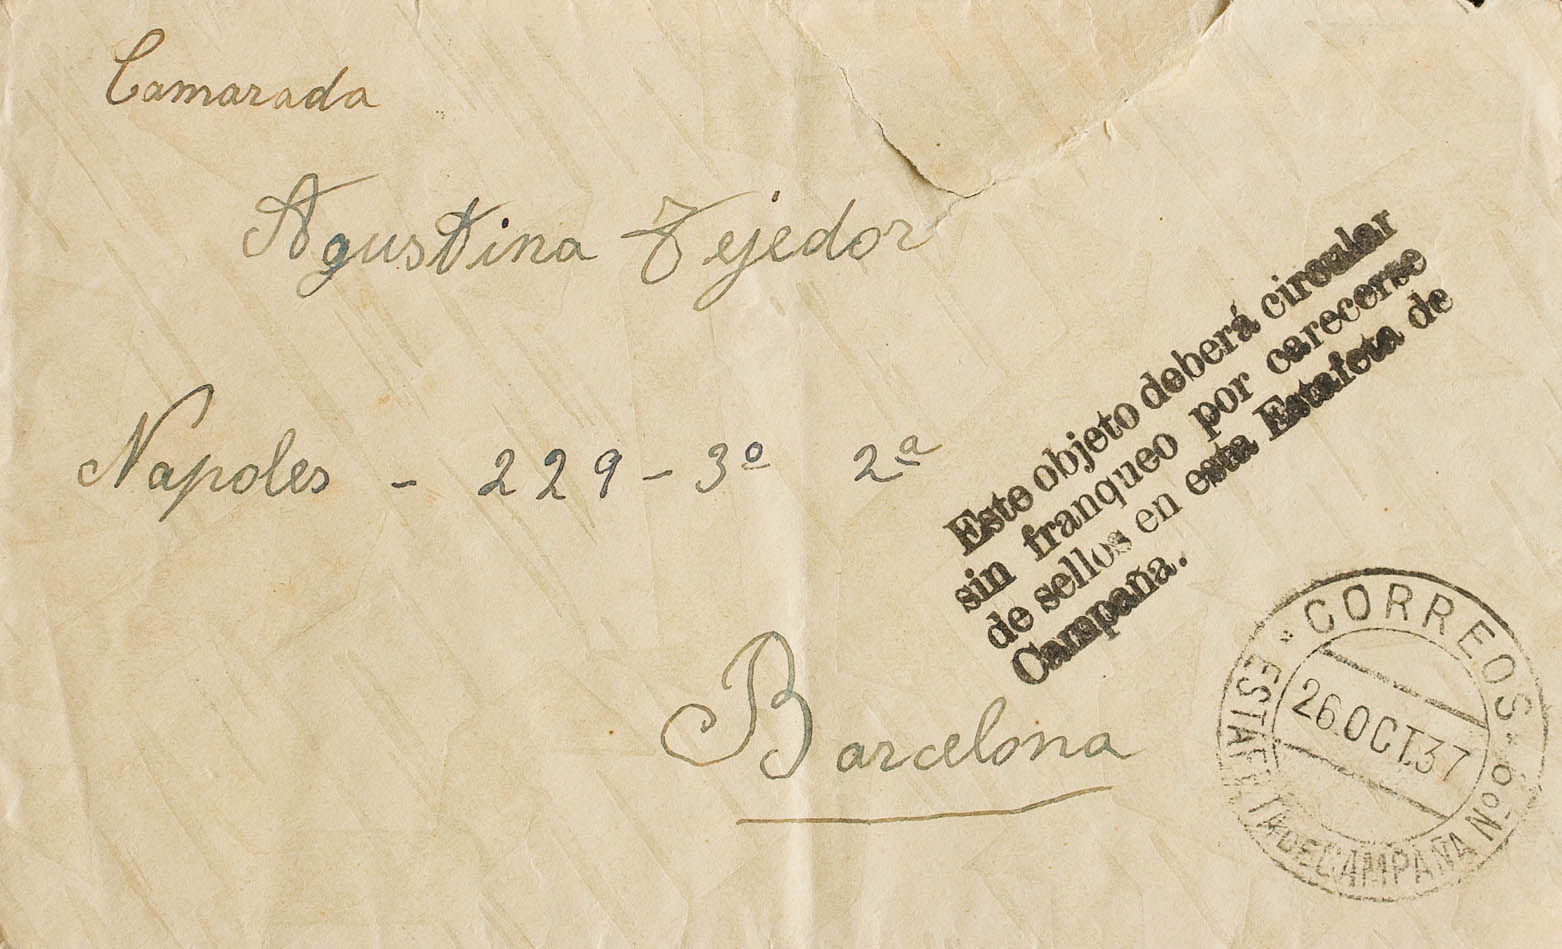 Camarada
Agustina Tejedor
Napoles - 229 - 3º 2ª
Barcelona
Este objeto deberá circular
sin franqueo por carecerse
de sellos en esta Estafeta de
Campaña.
CORREOS
26.OCT.37
ESTAFETA DE CAMPAÑA Nº 9